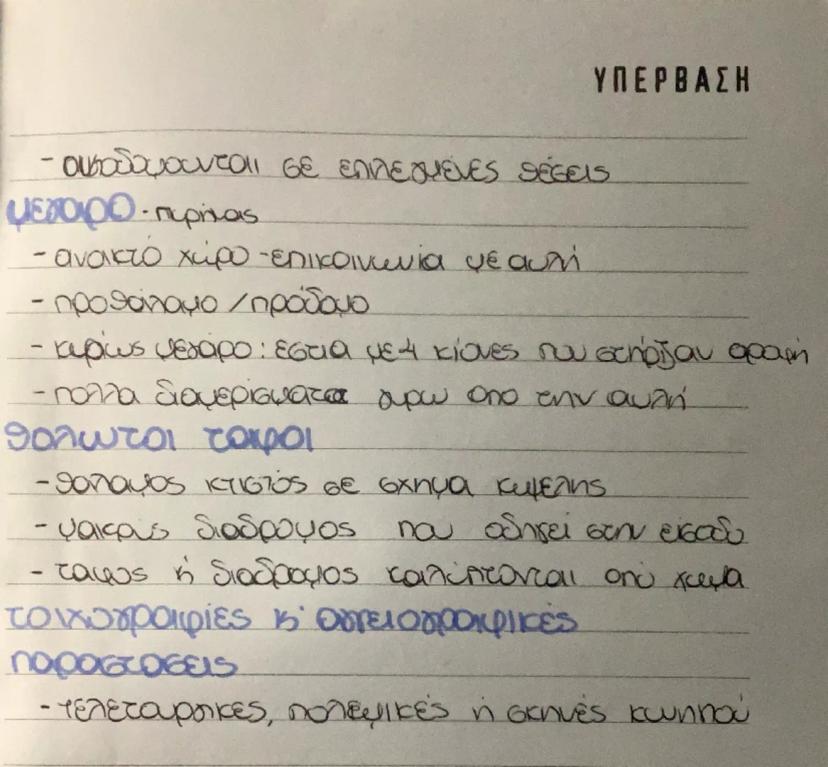 ΥΠΕΡΒΑΣΗ
- οικοδομουνται σε επιλεγμένες θέσεις
μεγαρο - πυρήνας
- ανακτό χώρο - επικοινωνία με αυλή
- προθάλαμο / πρόδομο
- κυρίως μεγάρο: εστία με 4 κίονες που στήριζαν οροφή
- πολλα διαμερίσματα γυρω απο την αυλή
θολωτοι ταφοι
- θαλαμος κτιστός σε σχημα κυψελης
- μακρύς διαδρομος που οδηγεί στην εισοδο
- ταφος ή διαδρομος καλύπτονται από χωμα
τοιχογραφίες κ' αγγειογραφικές
παραστασεις
- τελεταρχικες, πολεμικές ή σκηνές κυνηγιού